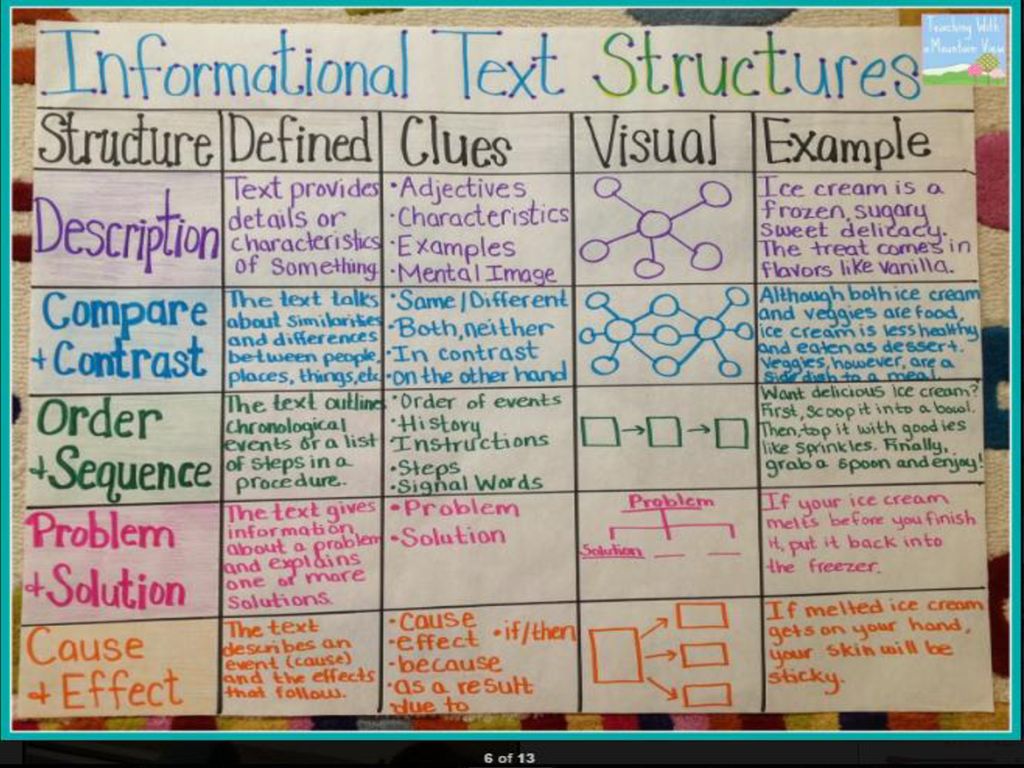 Teaching With
a Mountain View
Informational Text Structures
Structure
Defined
Clues
Visual
Example
Description
Text provides
details or
characteristics
of something.
•Adjectives
•Characteristics
•Examples
•Mental Image
Ice cream is a
frozen, sugary
sweet delicacy.
The treat comes in
flavors like vanilla.
Compare
+Contrast
The text talks
about similarities
and differences
between people,
places, things, etc.
•Same/Different
•Both, neither
•In contrast
•on the other hand
Although both ice cream
and veggies are food,
ice cream is less healthy
and eaten as dessert.
Veggies, however, are a
side dish to a meal.
Order
+Sequence
The text outlines
chronological
events or a list
of steps in a
procedure.
•Order of events
•History
Instructions
•Steps
•Signal Words
Want delicious ice cream?
First, scoop it into a bowl.
Then, top it with goodies
like sprinkles. Finally,
grab a spoon and enjoy!
Problem
+Solution
The text gives
information
about a problem
and explains
one or more
solutions.
•Problem
•Solution
Problem
Solution
If your ice cream
melts before you finish
it, put it back into
the freezer.
Cause
+Effect
The text
describes an
event (cause)
and the effects
that follow.
•cause
•effect •if/then
•because
•as a result
due to
If melted ice cream
gets on your hand,
your skin will be
sticky.
6 of 13